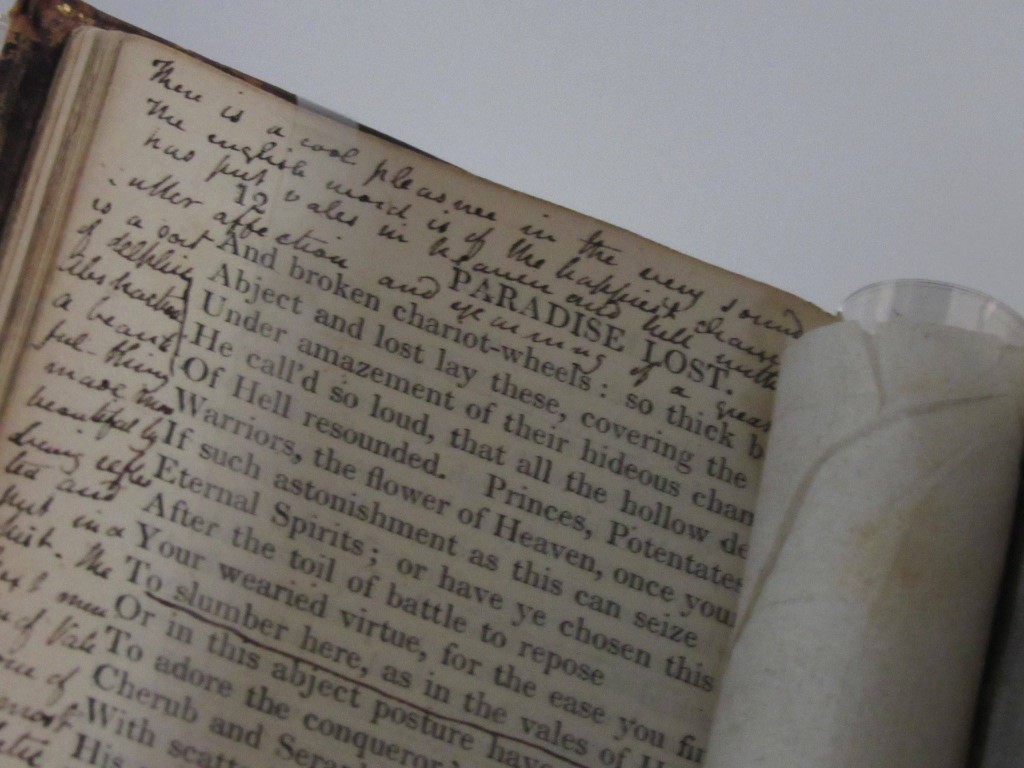 There is a cool pleasure in the very sound
The english word is of the happiest chance
has put vales in heaven and hell with
utter affection and yearning of a great
12
PARADISE LOST.
is a sort
of delphic
Abstraction
a beauti
ful thing
made more
beautiful by
being reflec
ted and
put in a
Mist. The
of Vale
one of
most
And broken chariot-wheels: so thick b
Abject and lost lay these, covering the
Under amazement of their hideous chan
He call'd so loud, that all the hollow de
Of Hell resounded. Princes, Potentates
Warriors, the flower of Heaven, once you
If such astonishment as this can seize
Eternal Spirits; or have ye chosen this
After the toil of battle to repose
Your wearied virtue, for the ease you fin
To slumber here, as in the vales of H
Or in this abject posture have
To adore the conqueror
Cherub and Serap
With scatt
His